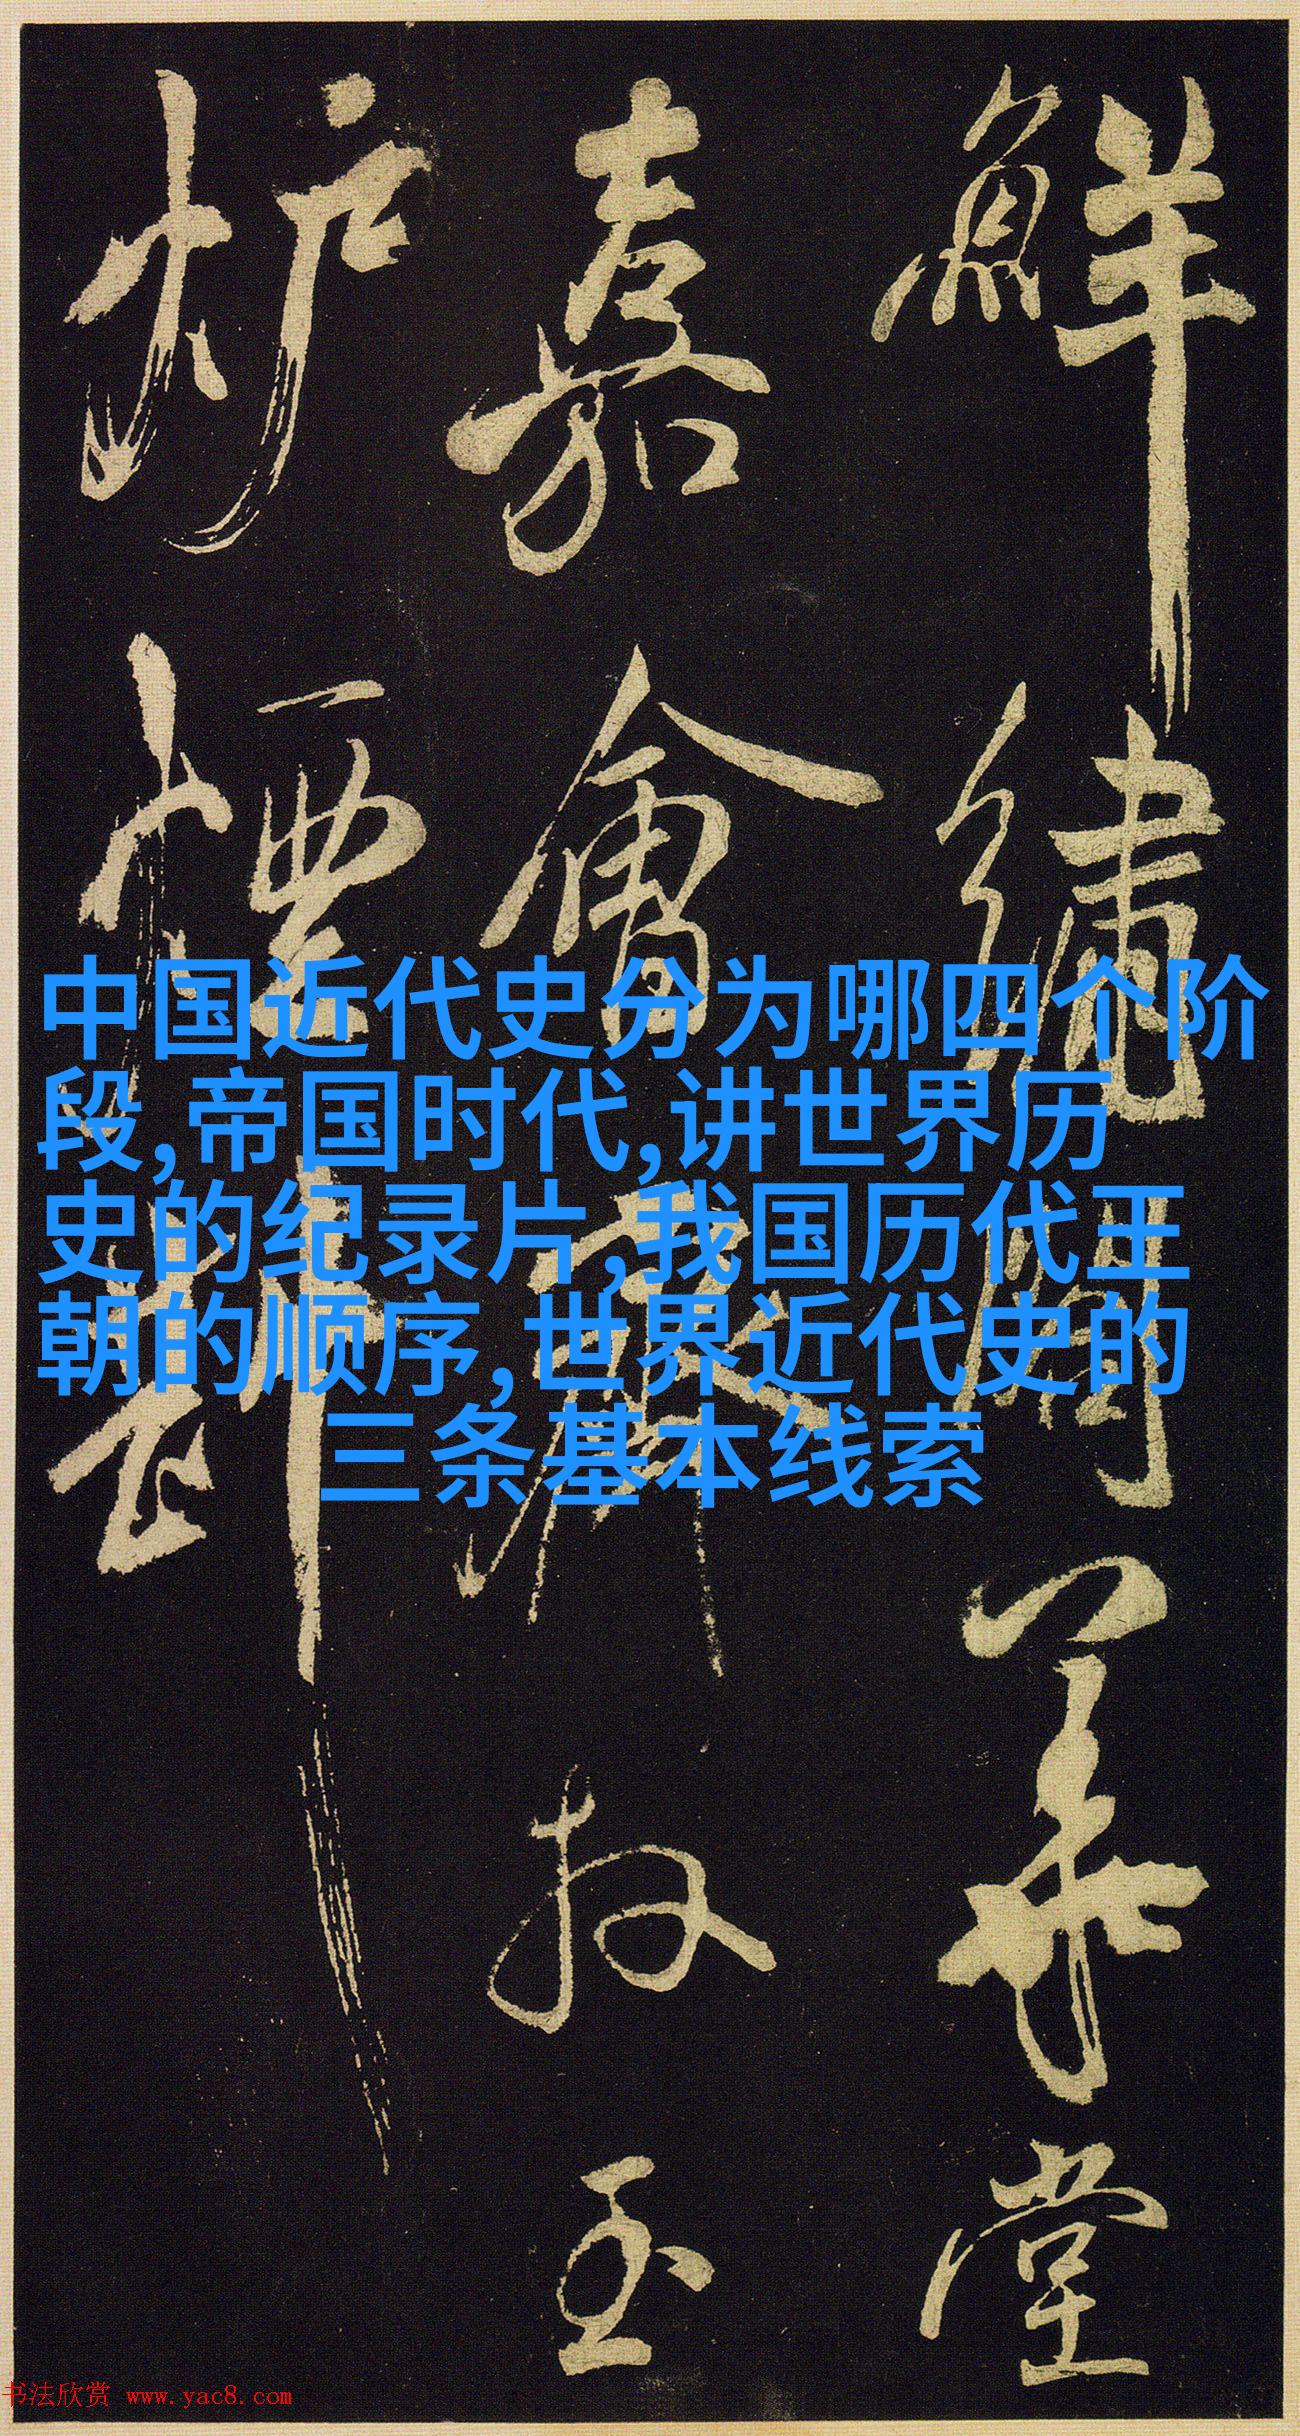 中国近代史分为哪四个阶
段,帝国时代,讲世界历
史的纪录片,我国历代王
朝的顺序,世界近代史的
三条基本线索
鮮繡闢華堂
嘉會
放玉
书法欣赏 www.yac8.com